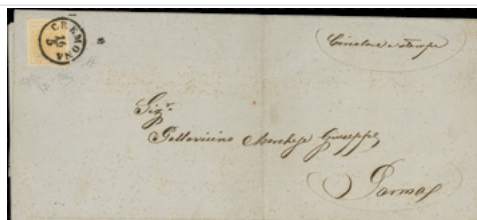 CREMONA
15
Circolare a stampa
Sigr.
Pallavicino Marchese Giuseppe
Parma